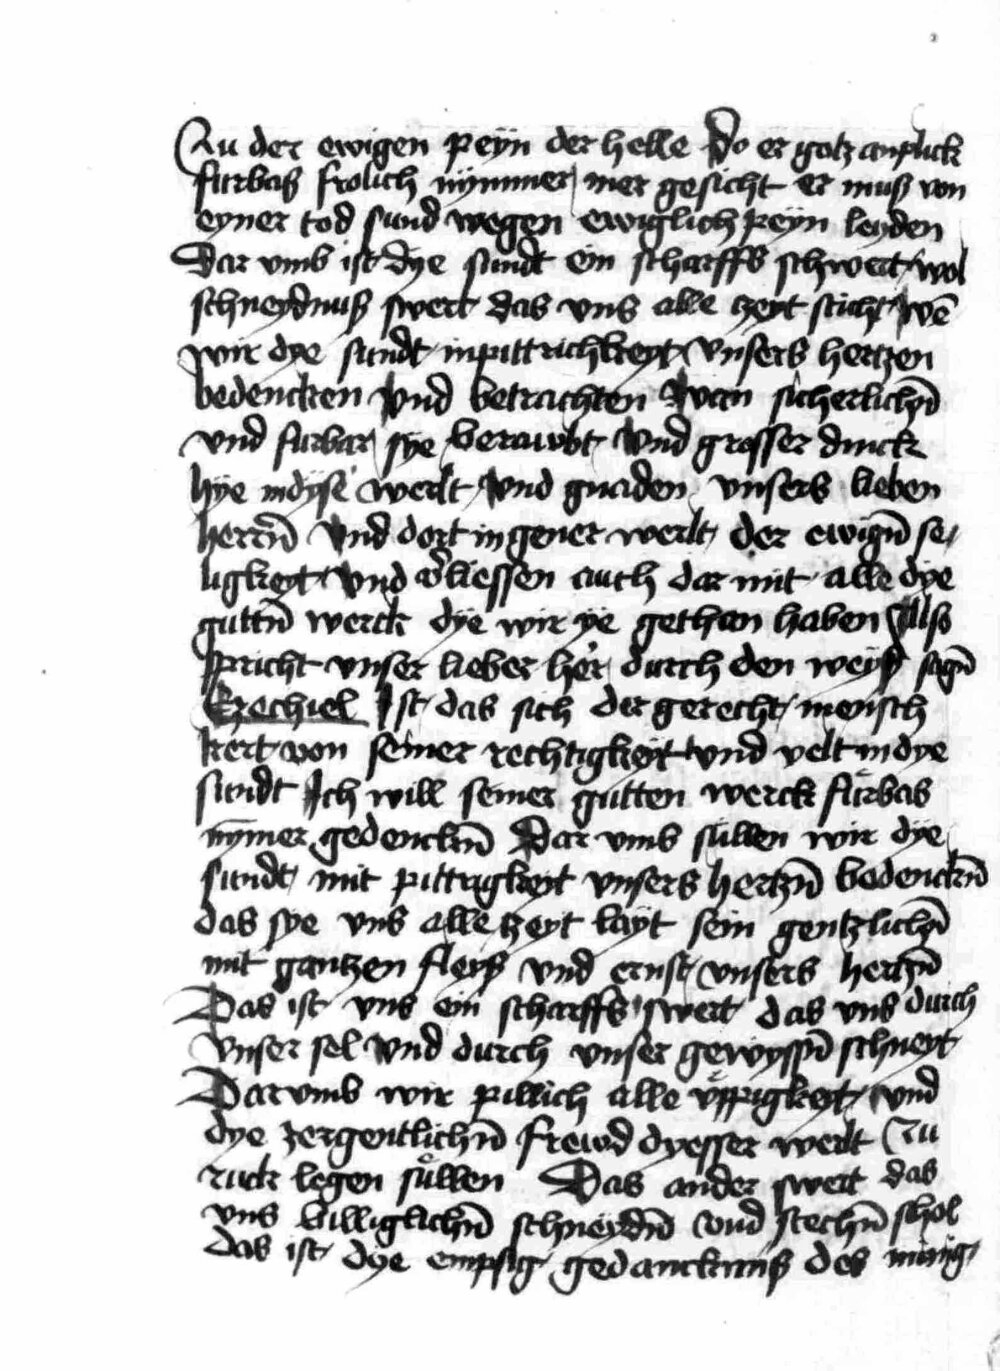 Zu der ewigen peyn der helle Do er gotz anplick
furbas frolich nymmer mer gesicht er muß von
eyner tod sund wegen ewiglich peyn leyden
Dar vmb ist dye sundt ein scharffs schwert wol
schneydmuß swert das vns alle zeyt sticht wē
wir dye sundt in pittrichkeyt vnsers hertzen
bedencken vnd betrachten wan sicherlichn̄
vnd furbar sye beraubt vnd grosser
hye in dyser werlt vnd gnaden vnsers lieben
herrn̄ vnd dort in gener werlt der ewign̄ se
ligkeyt vnd v̾liessen auch dar mit alle dye
guttn̄ werck dye wir ye gethan haben Als
spricht vnser lieber her durch den weyss
Ezechiel Ist das sich der gerecht mensch
kert von seiner rechtigkeyt vnd velt in dye
sundt Ich will seiner gutten werck furbas
nym̄er gedenckn̄ Dar vmb sullen wir dye
sundt mit pittrigkeyt vnsers hertzn̄ bedenckn̄
das sye vns alle zeyt layt sein gentzlichn̄
mit gantzen fleyß vnd ernst vnsers hertzn̄
Das ist vns ein scharffs swert das vns durch
vnser sel vnd durch vnser gewyssn̄ schneyt
Dar vmb wir pillich alle vppigkeyt vnd
dye zergentlichn̄ frewd dysser werlt Zu
ruck legen sullen Das ander swert das
vns billiglichn̄ schneydn̄ vnd stechn̄ schol
das ist dye empsig gedancknuß des